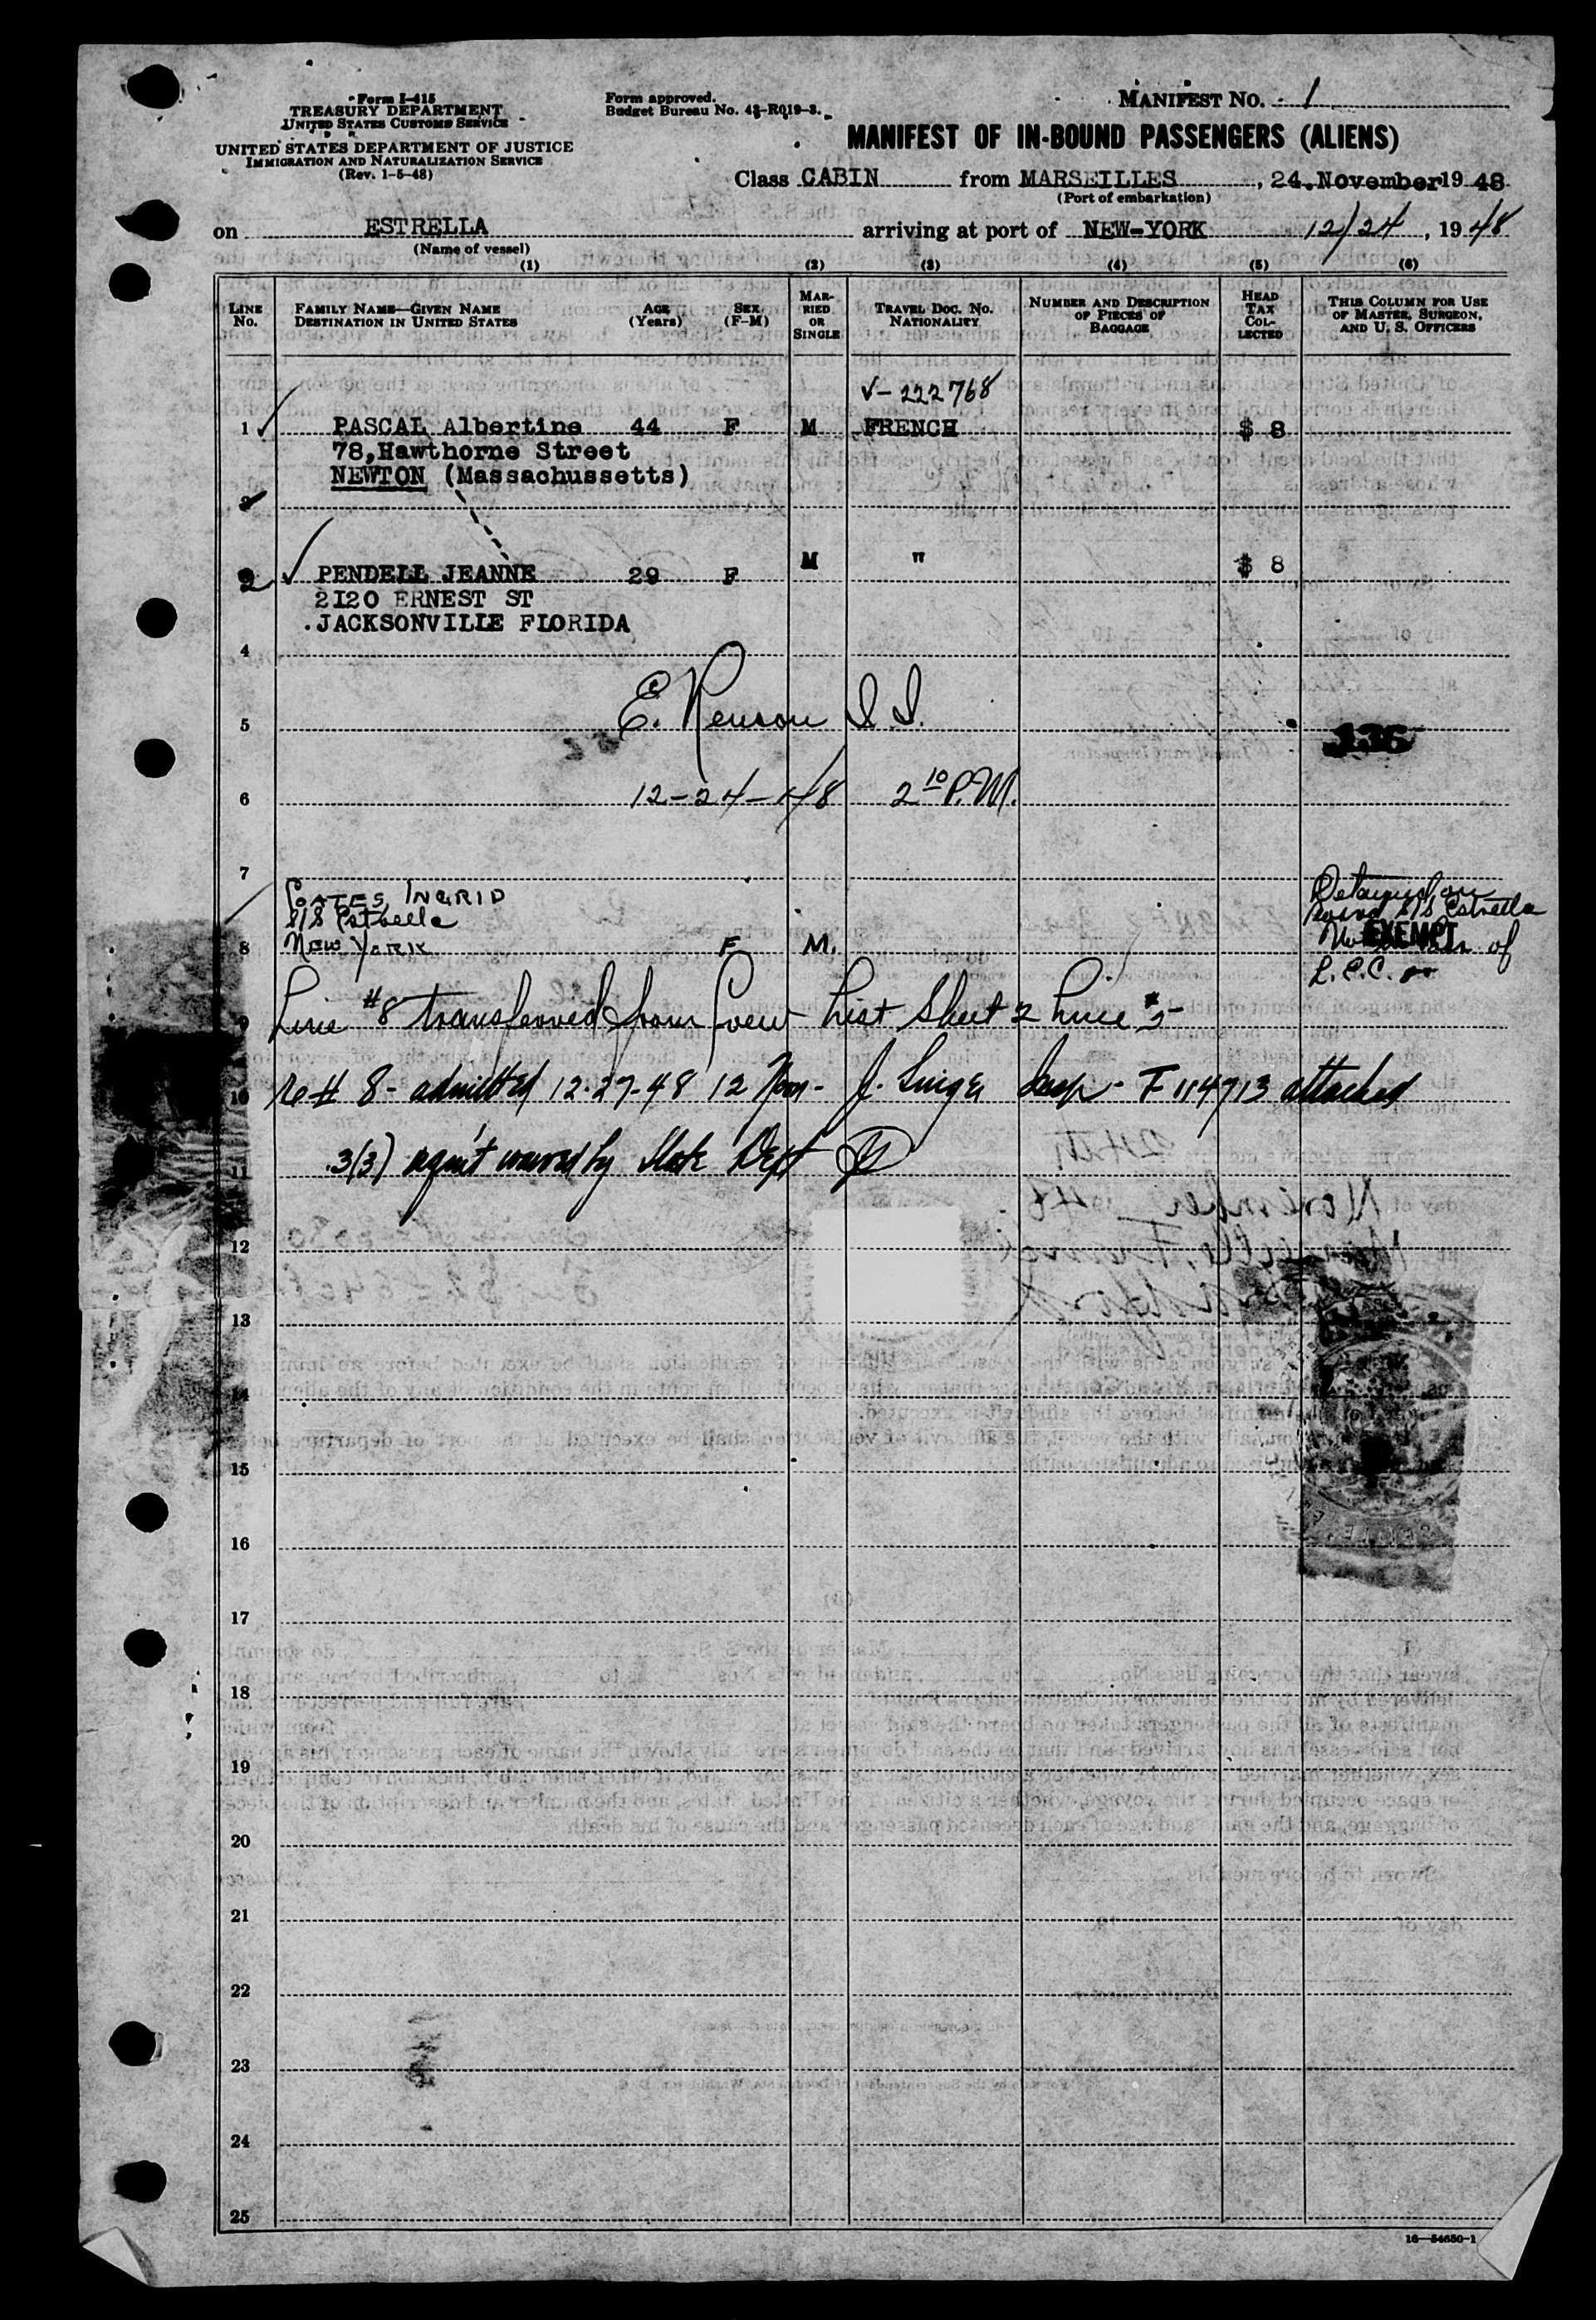 Form I-415
TREASURY DEPARTMENT
UNITED STATES CUSTOMS SERVICE
UNITED STATES DEPARTMENT OF JUSTICE
IMMIGRATION AND NATURALIZATION SERVICE
(Rev. 1-5-48)
Form approved.
Budget Bureau No. 43-R019-3.
MANIFEST NO. 1
MANIFEST OF IN-BOUND PASSENGERS (ALIENS)
Class CABIN from MARSEILLES, 24.November 19 48
(Port of embarkation)
on ESTRELLA arriving at port of NEW-YORK 12/24, 19 48
(Name of vessel)
(1) (2) (3) (4) (5) (6)
LINE No. FAMILY NAME—GIVEN NAME DESTINATION IN UNITED STATES AGE (Years) SEX (F-M) MARRIED OR SINGLE TRAVEL DOC. NO. NATIONALITY NUMBER AND DESCRIPTION OF PIECES OF BAGGAGE HEAD TAX COLLECTED THIS COLUMN FOR USE OF MASTER, SURGEON, AND U. S. OFFICERS
V-222768
1 PASCAL Albertine 44 F M FRENCH $ 8
78,Hawthorne Street
NEWTON (Massachussetts)
2 PENDELL JEANNE 29 F M " $ 8
2I2O ERNEST ST
.JACKSONVILLE FLORIDA
4
E. Renson I.I.
5
136
6 12-24-48 2 10 P.M.
7
COATES, INGRID
S/S Estrella
8 NEW YORK F M.
Detained on
board S/S Estrella
EXEMPT of
Line #8 transferred from Crew List Sheet 2 Line #5
9
10 re # 8- admitted 12-27-48 12 Noon- J. Singer Insp- F 114713 attached
11 3(3) reqm't waived by State Dept
12
13
14
15
16
17
18
19
20
21
22
23
24
25
16—54650-1